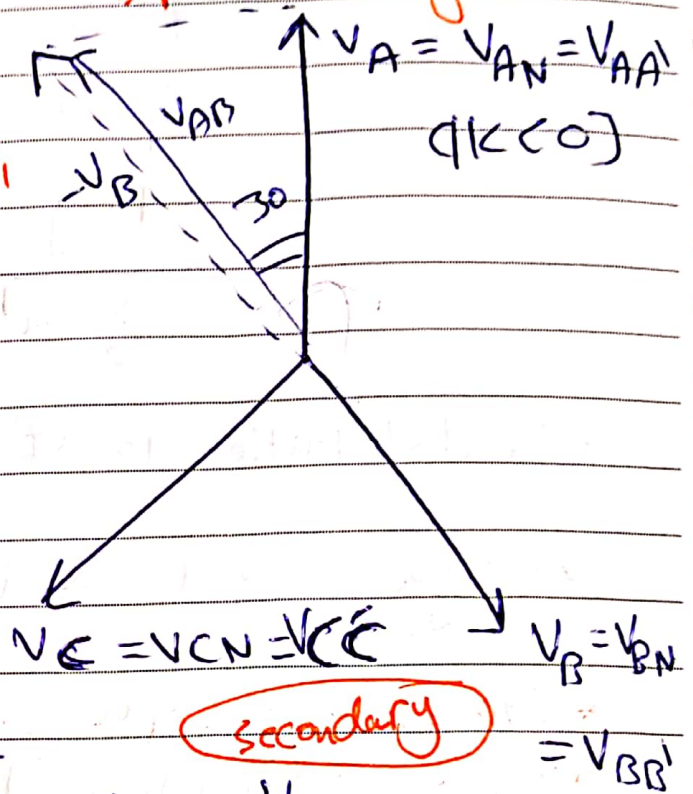 VA = VAN = VAA'
VAB
-VB
30
VC = VCN = VCC'
VB = VBN
= VBB'
secondary